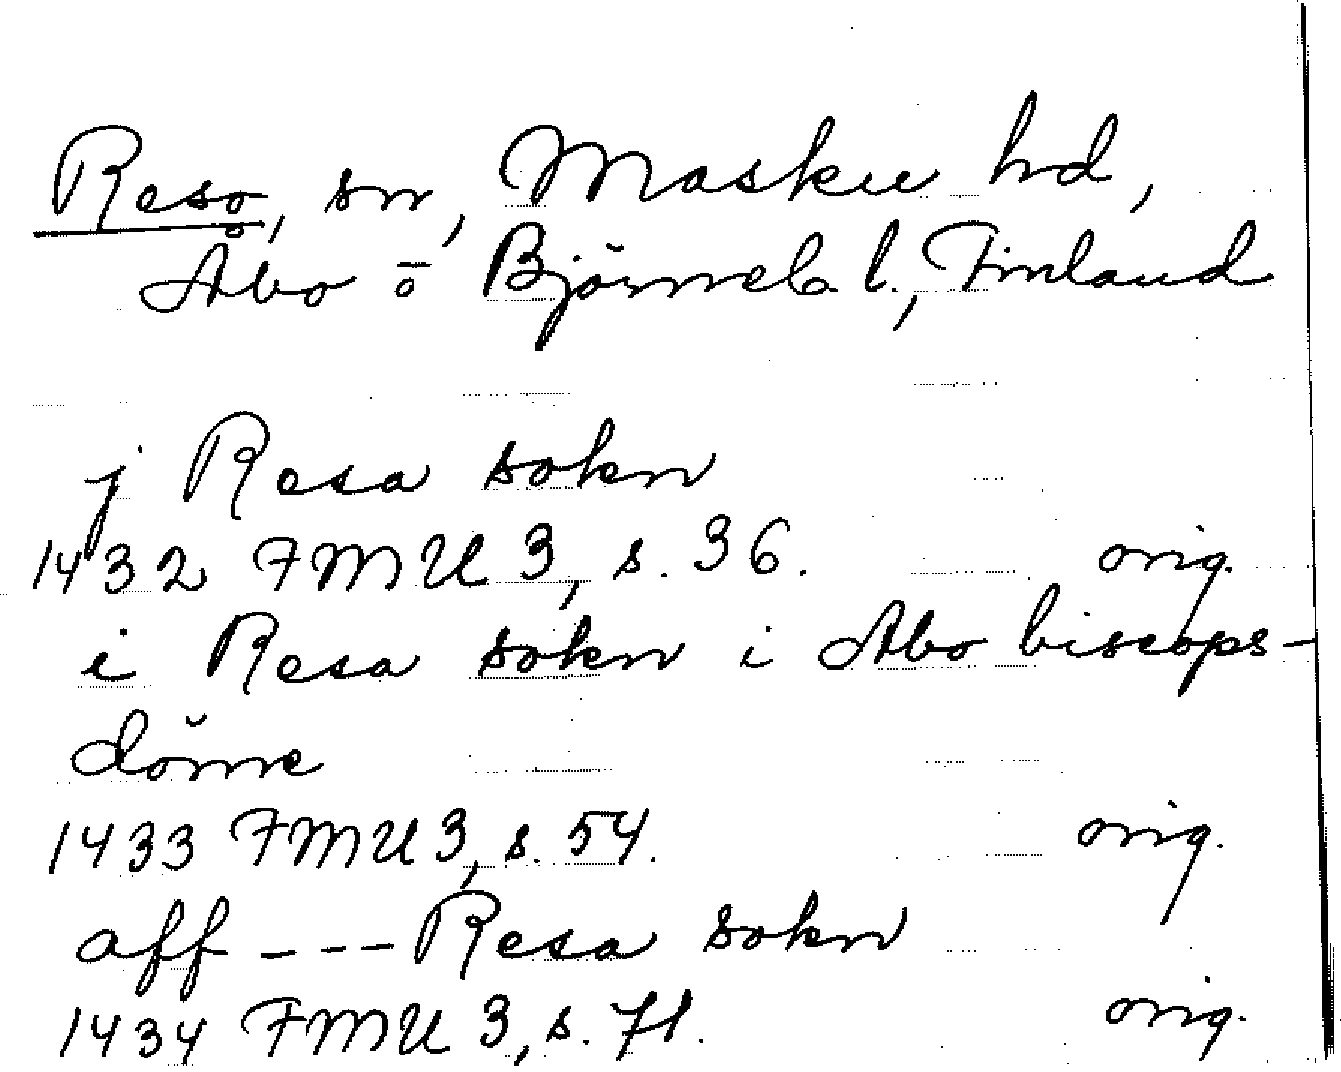 Reso, sn, Masku hd,
Åbo ō Björneb. l., Finland
j Resa sokn
1432 FMU 3, s. 36. orig.
i Resa sokn i Abo biscops-
döme
1433 FMU 3, s. 54. orig.
aff --- Resa sokn
1434 FMU 3, s. 71. orig.